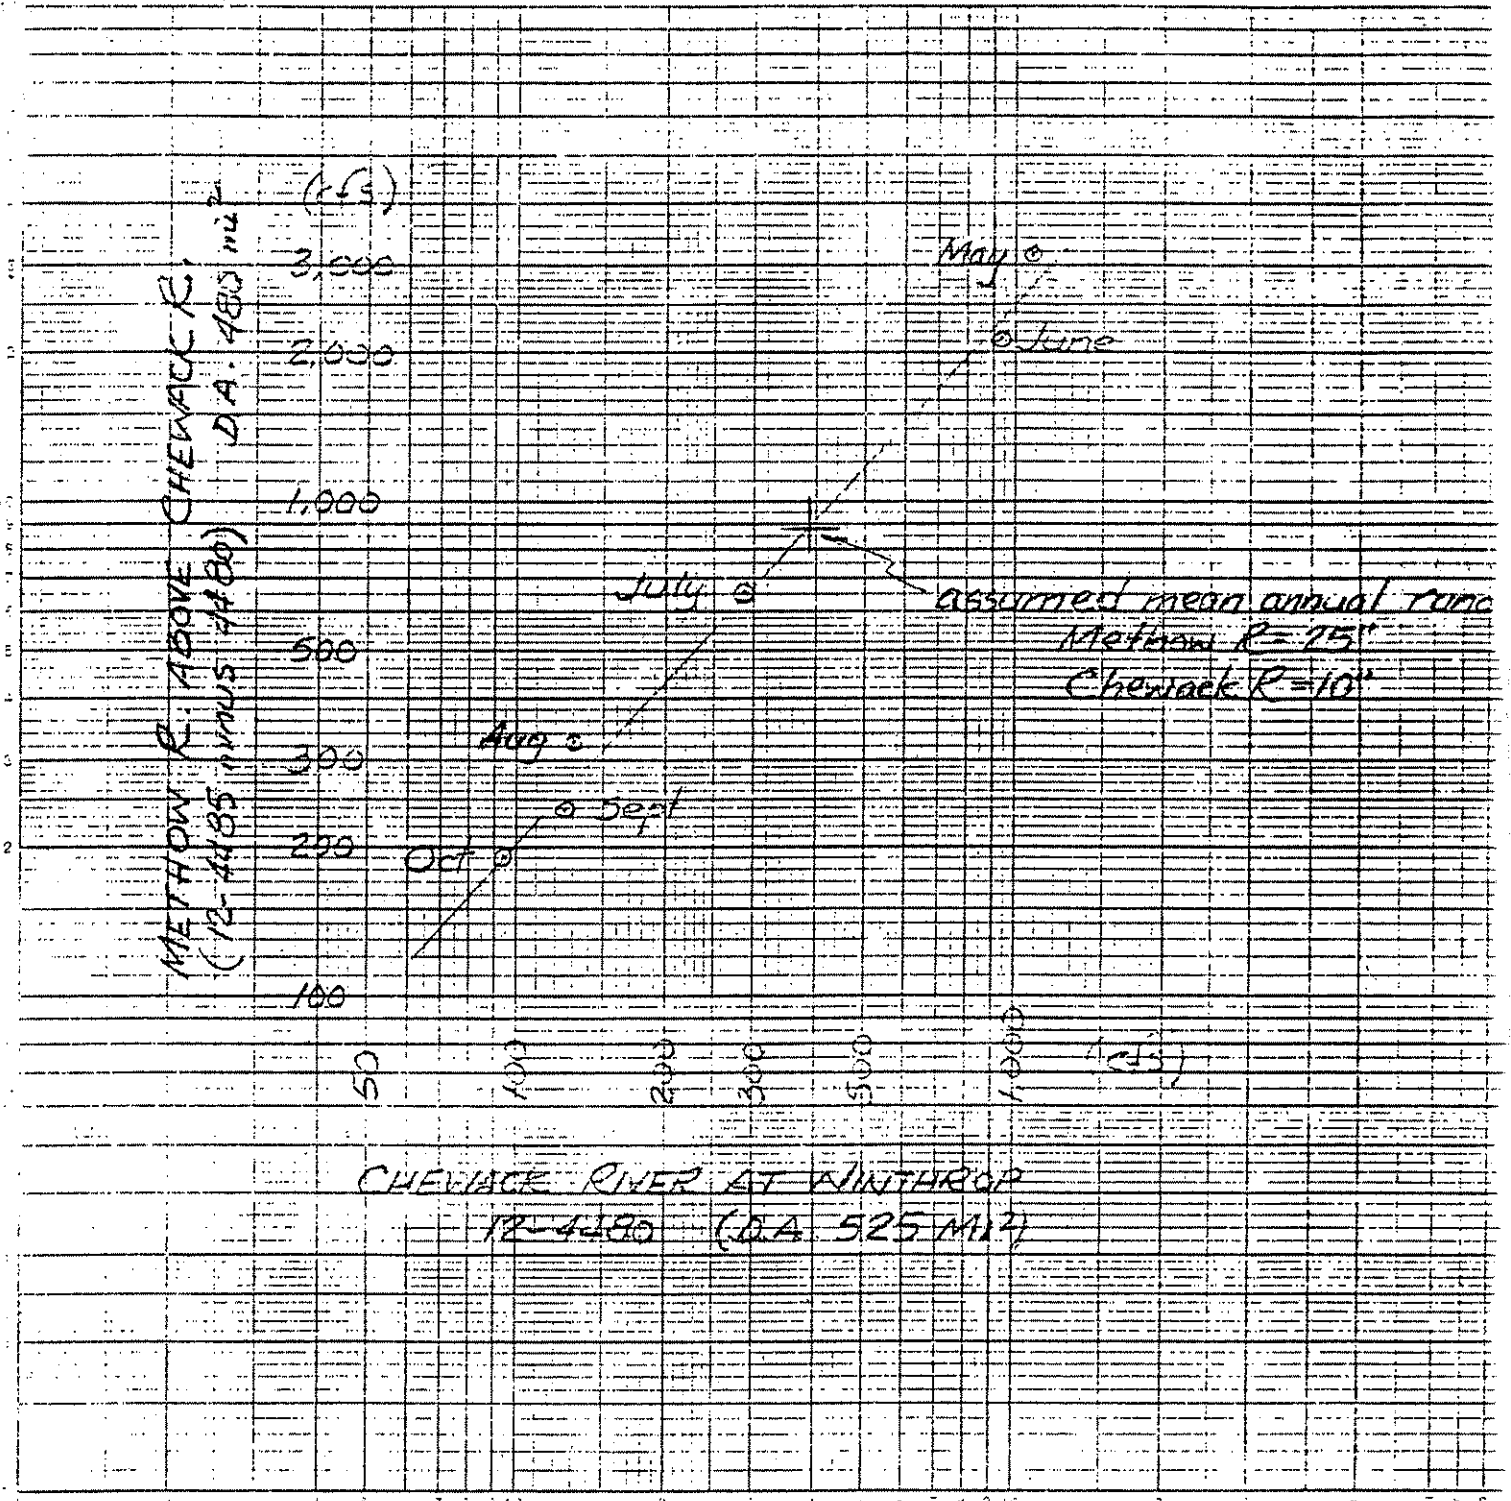 METHOW R. ABOVE CHEWACK R.
(12-4485 minus 4480) D.A. 480 mi²
(cfs)
3,000
2,000
1,000
500
300
200
100
May
June
July
Aug
Sept
Oct
assumed mean annual
Methow R = 25"
Chewack R = 10"
50
100
200
300
500
1,000
(cfs)
CHEWACK RIVER AT WINTHROP
12-4480 (D.A. 525 MI²)